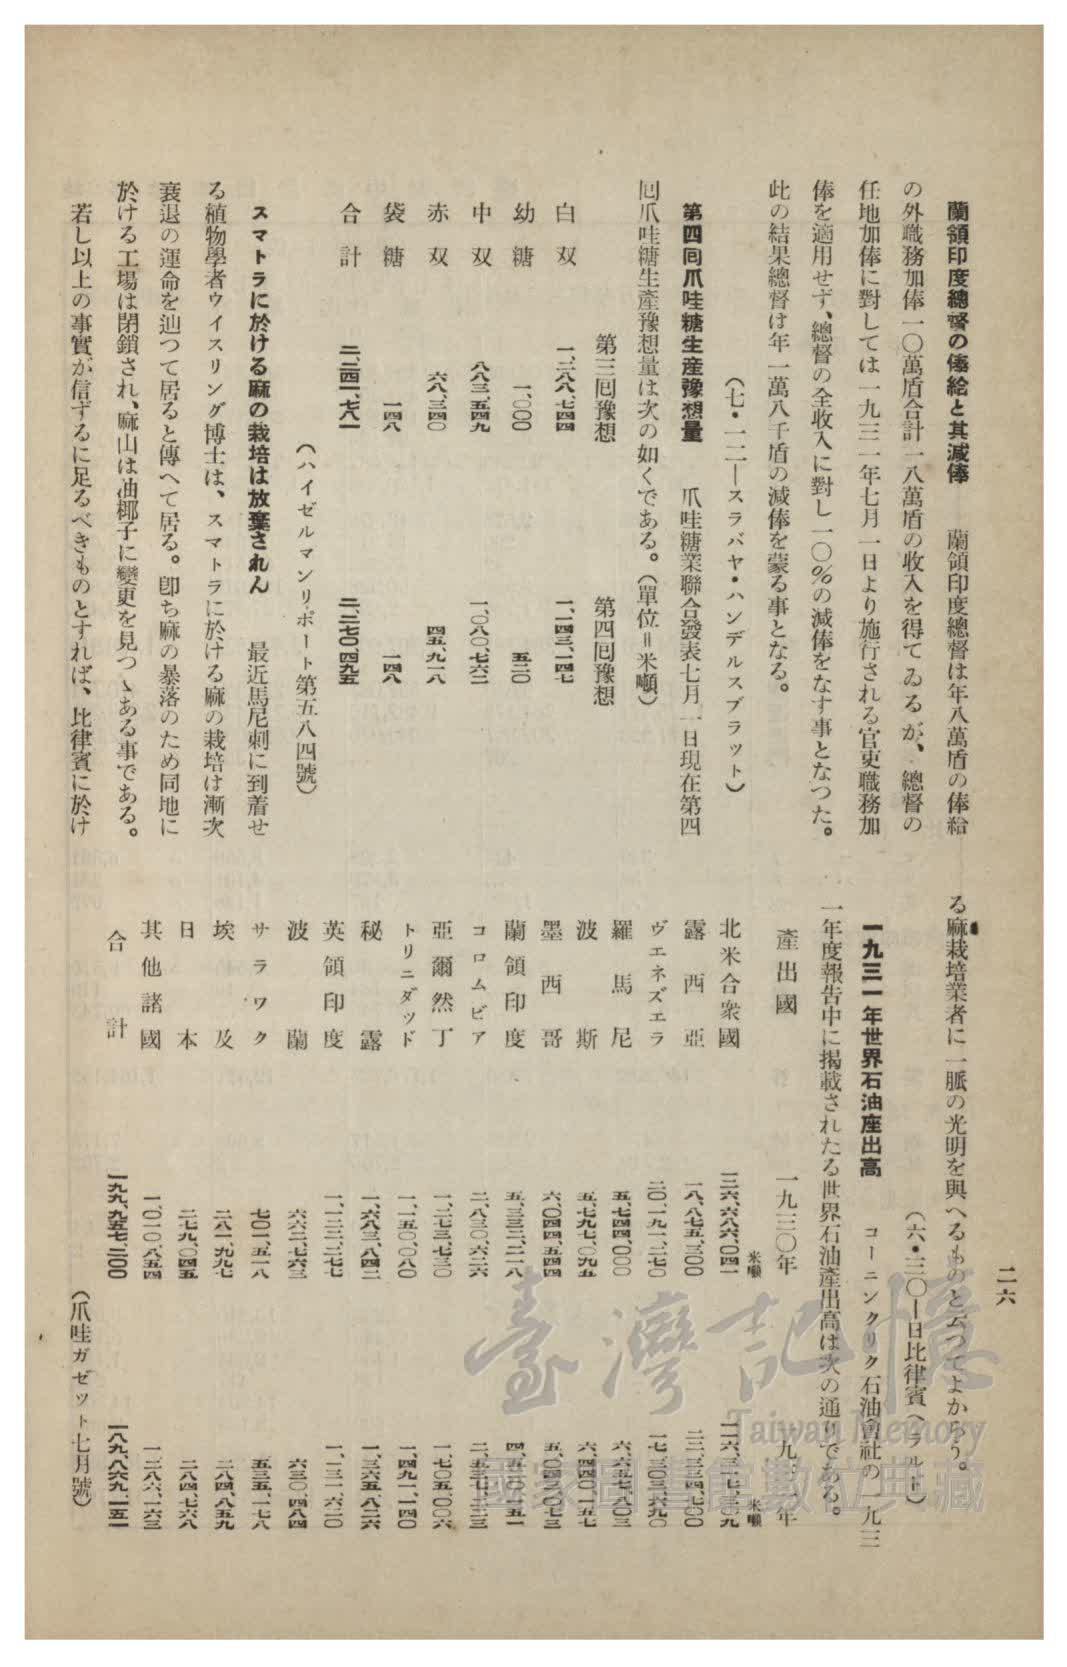 二六
蘭領印度總督の俸給と其減俸　蘭領印度總督は年八萬盾の俸給
の外職務加俸一〇萬盾合計一八萬盾の收入を得てゐるが、總督の
任地加俸に對しては一九三一年七月一日より施行される官吏職務加
俸を適用せず、總督の全收入に對し一〇％の減俸をなす事となつた。
此の結果總督は年一萬八千盾の減俸を蒙る事となる。
（七・一二―スラバヤ・ハンデルスブラット）
第四囘爪哇糖生産豫想量　爪哇糖業聯合發表七月一日現在第四
囘爪哇糖生產豫想量は次の如くである。（單位＝米噸）
第三囘豫想　第四囘豫想
白双　一、二八八、七四四　一、一四三、一四七
幼糖　一、〇〇〇　五二〇
中双　八八三、五四九　一、〇八〇、七六二
赤双　六八、三四〇　四五、九一八
袋糖　一四八　一四八
合計　二、二四一、七八一　二、二七〇、四九五
（ハイゼルマンリポート第五八四號）
スマトラに於ける麻の栽培は放棄されん　最近馬尼刺に到着せ
る植物學者ウイスリング博士は、スマトラに於ける麻の栽培は漸次
衰退の運命を辿つて居ると傳へて居る。卽ち麻の暴落のため同地に
於ける工場は閉鎖され、麻山は油椰子に變更を見つゝある事である。
若し以上の事實が信ずるに足るべきものとすれば、比律賓に於け
る麻栽培業者に一脈の光明を與へるものと云つてよからう。
（六・三〇―日比律賓ヘラルド）
一九三一年世界石油産出高　コーニンクリク石油會社の一九三
一年度報告中に揭載されたる世界石油產出高は次の通りである。
產出國　一九三〇年　一九三一年
米噸　米噸
北米合衆國　一二六、六八六、〇四一　一一六、三一七、三〇九
露西亞　一八、八七五、三〇〇　二二、三三四、七〇〇
ヴエネズエラ　二〇、一九一、二七〇　一七、三〇三、六九〇
羅馬尼　五、七四四、〇〇〇　六、六五七、八〇三
波斯　五、七九七、〇九五　六、四四〇、一五七
墨西哥　六、〇四四、五四四　五、〇四二、〇七三
蘭領印度　五、五三二、二一八　四、五一〇、一五一
コロムビア　二、八三〇、六二六　二、五三七、二二三
亞爾然丁　一、二七三、七三〇　一、七〇五、〇〇六
トリニダッド　一、一五〇、〇八〇　一、四九一、一四〇
秘露　一、六八三、八四二　一、三六五、八二六
英領印度　一、一二二、二七七　一、一三一、六二〇
波蘭　六六二、七六三　六三〇、四八四
サラワク　七〇一、五一八　五三五、一七八
埃及　二八一、九九七　二八四、八五九
日本　二七九、〇四五　二八四、七六八
其他諸國　一、〇一〇、八五四　一、二八六、一六三
合計　一九九、九五七、二〇〇　一八九、八六九、一五一
（爪哇ガゼット七月號）
臺灣記憶
Taiwan Memory
國家圖書館數位典藏